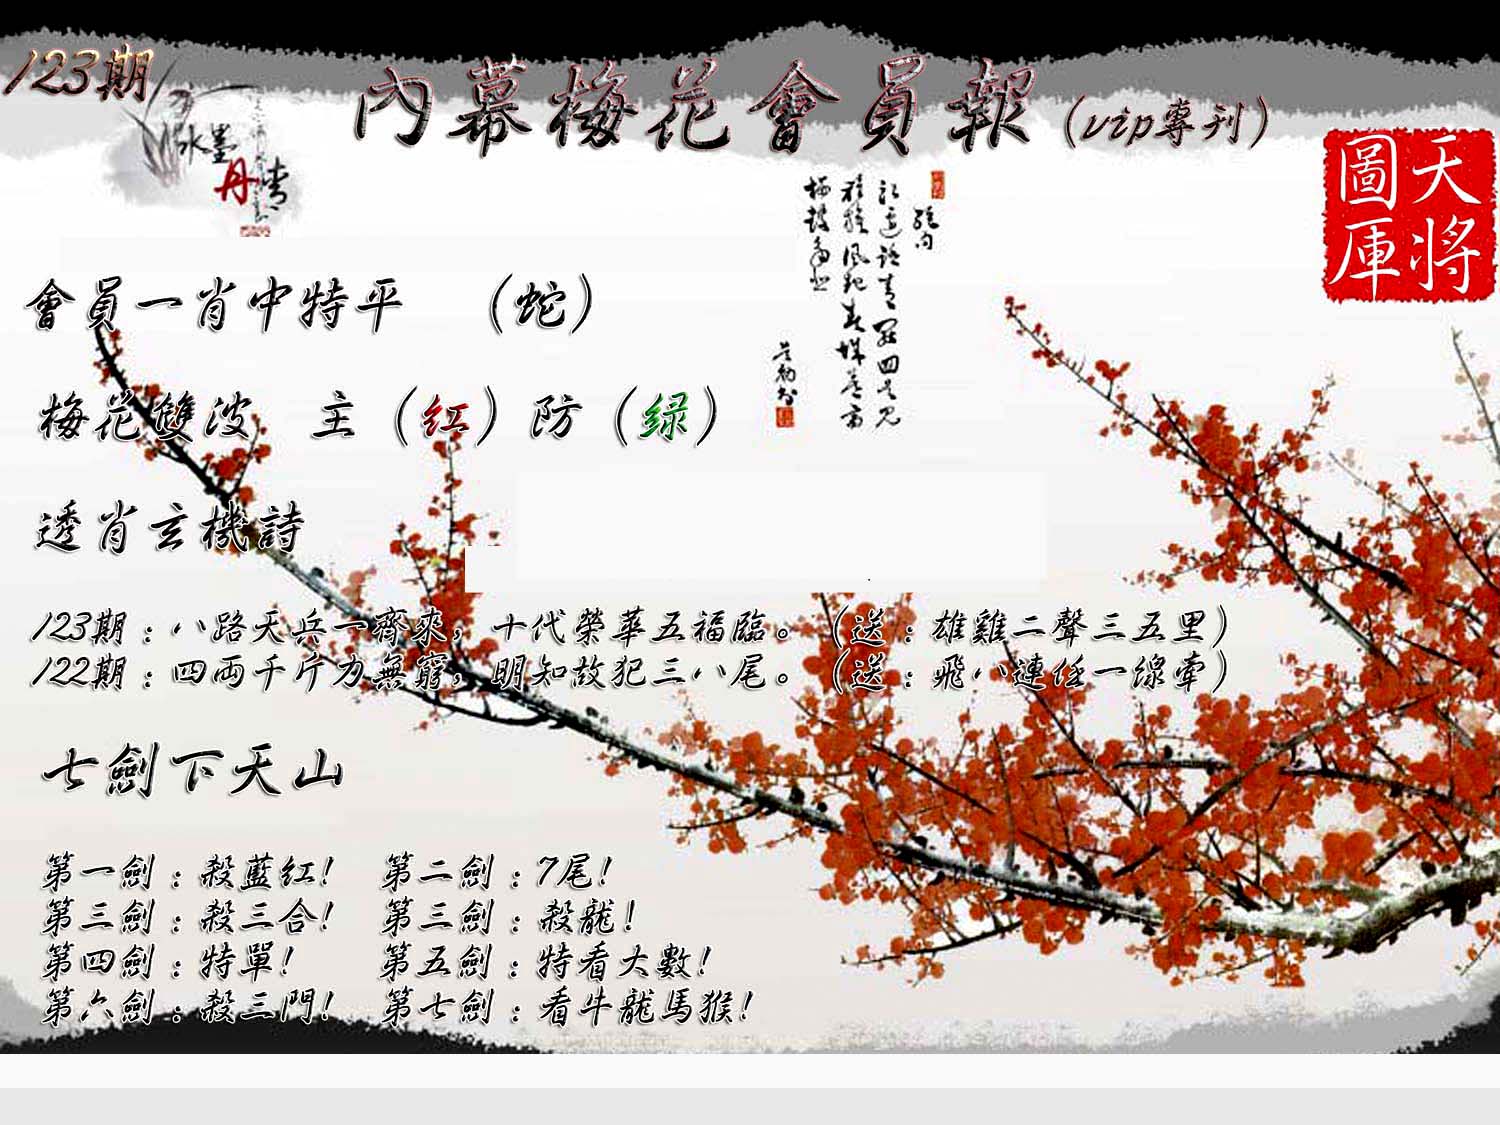 123期
內幕梅花會員報（vip專刊）
水墨
丹青
天將
圖庫
會員一肖中特平　（蛇）
梅花雙波　主（红）防（绿）
透肖玄機詩
123期：八路天兵一齊來，十代榮華五福臨。（送：雄雞二聲三五里）
122期：四両千斤力無窮，明知故犯三八尾。（送：飛八連任一線牽）
七劍下天山
第一劍：殺藍红！　第二劍：7尾！
第三劍：殺三合！　第三劍：殺龍！
第四劍：特單！　第五劍：特看大數！
第六劍：殺三門！　第七劍：看牛龍馬猴！